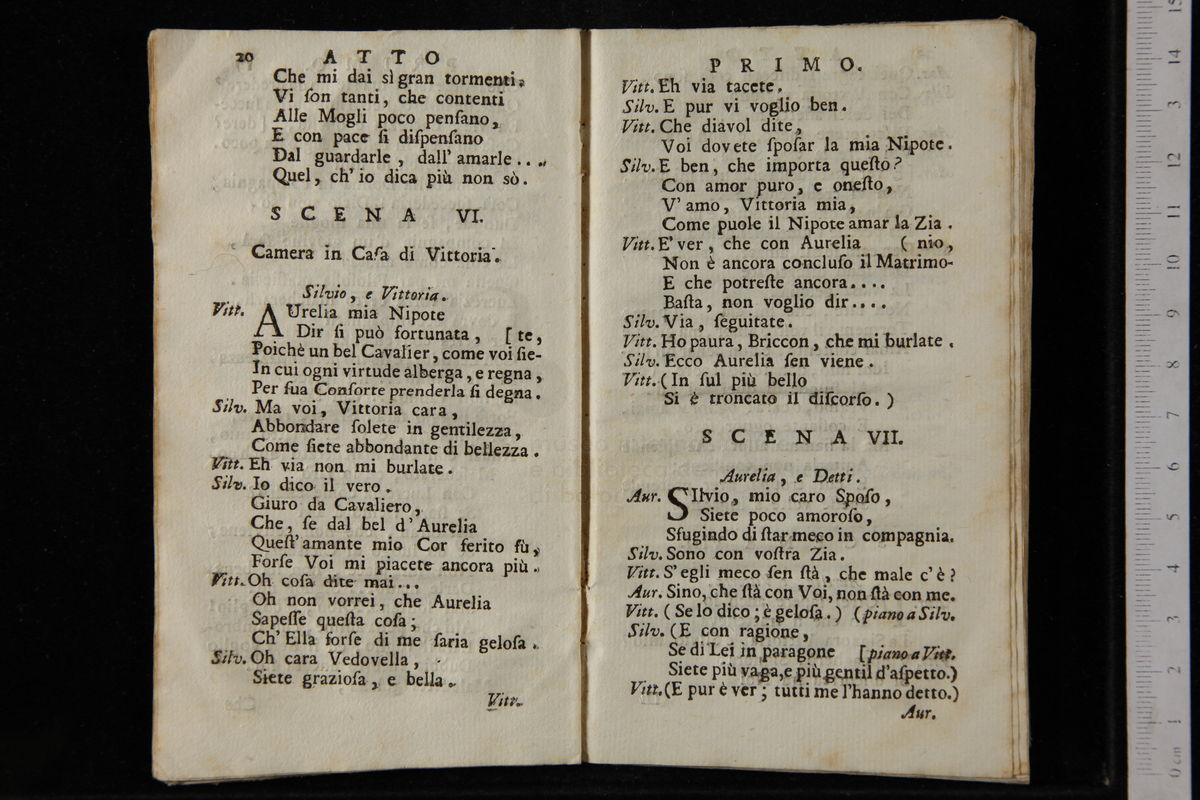 20 A T T O
Che mi dai sì gran tormenti,
Vi ſon tanti, che contenti
Alle Mogli poco penſano,
E con pace ſi diſpenſano
Dal guardarle, dall' amarle....
Quel, ch' io dica più non sò.
S C E N A VI.
Camera in Caſa di Vittoria.
Silvio, e Vittoria.
Vitt. AUrelia mia Nipote
Dir ſi può fortunata, [te,
Poichè un bel Cavalier, come voi ſie-
In cui ogni virtude alberga, e regna,
Per ſua Conſorte prenderla ſi degna.
Silv. Ma voi, Vittoria cara,
Abbondare ſolete in gentilezza,
Come ſiete abbondante di bellezza.
Vitt. Eh via non mi burlate.
Silv. Io dico il vero.
Giuro da Cavaliero,
Che, ſe dal bel d'Aurelia
Queſt' amante mio Cor ferito fù,
Forſe Voi mi piacete ancora più.
Vitt. Oh coſa dite mai...
Oh non vorrei, che Aurelia
Sapeſſe queſta coſa;
Ch' Ella forſe di me ſaria geloſa.
Silv. Oh cara Vedovella,
Siete grazioſa, e bella.
Vitt.
P R I M O.
Vitt. Eh via tacete.
Silv. E pur vi voglio ben.
Vitt. Che diavol dite,
Voi dovete ſpoſar la mia Nipote.
Silv. E ben, che importa queſto?
Con amor puro, e oneſto,
V' amo, Vittoria mia,
Come puole il Nipote amar la Zia.
Vitt. E' ver, che con Aurelia ( nio,
Non è ancora concluſo il Matrimo-
E che potreſte ancora....
Baſta, non voglio dir....
Silv. Via, ſeguitate.
Vitt. Ho paura, Briccon, che mi burlate.
Silv. Ecco Aurelia ſen viene.
Vitt. (In ſul più bello
Si è troncato il diſcorſo.)
S C E N A VII.
Aurelia, e Detti.
Aur. SIlvio, mio caro Spoſo,
Siete poco amoroſo,
Sfugindo di ſtar meco in compagnia.
Silv. Sono con voſtra Zia.
Vitt. S' egli meco ſen ſtà, che male c' è?
Aur. Sino, che ſtà con Voi, non ſtà con me.
Vitt. (Se lo dico; è geloſa.) (piano a Silv.
Silv. (E con ragione,
Se di Lei in paragone [piano a Vitt.
Siete più vaga, e più gentil d'aſpetto.)
Vitt. (E pur è ver; tutti me l'hanno detto.)
Aur.